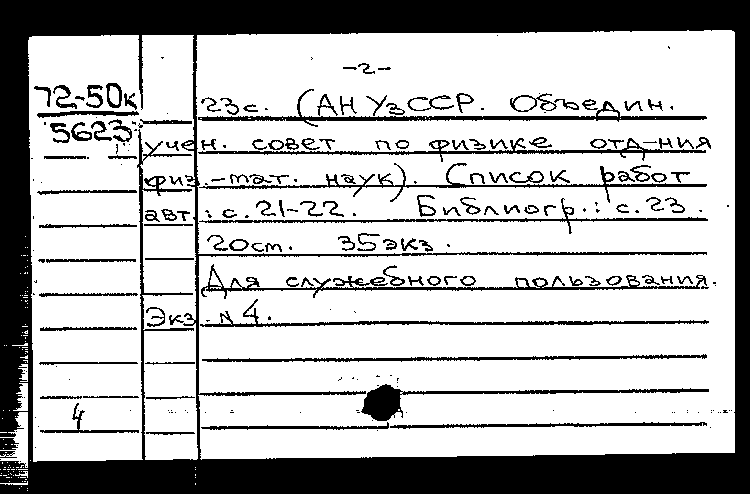 -2-
72-50к 23с. (АН УзССР. Объедин.
5623 учен. совет по физике отд-ния
физ.-мат. наук). Список работ
авт.: с. 21-22. Библиогр.: с. 23.
20см. 35 экз.
Для служебного пользования.
Экз. N 4.
4